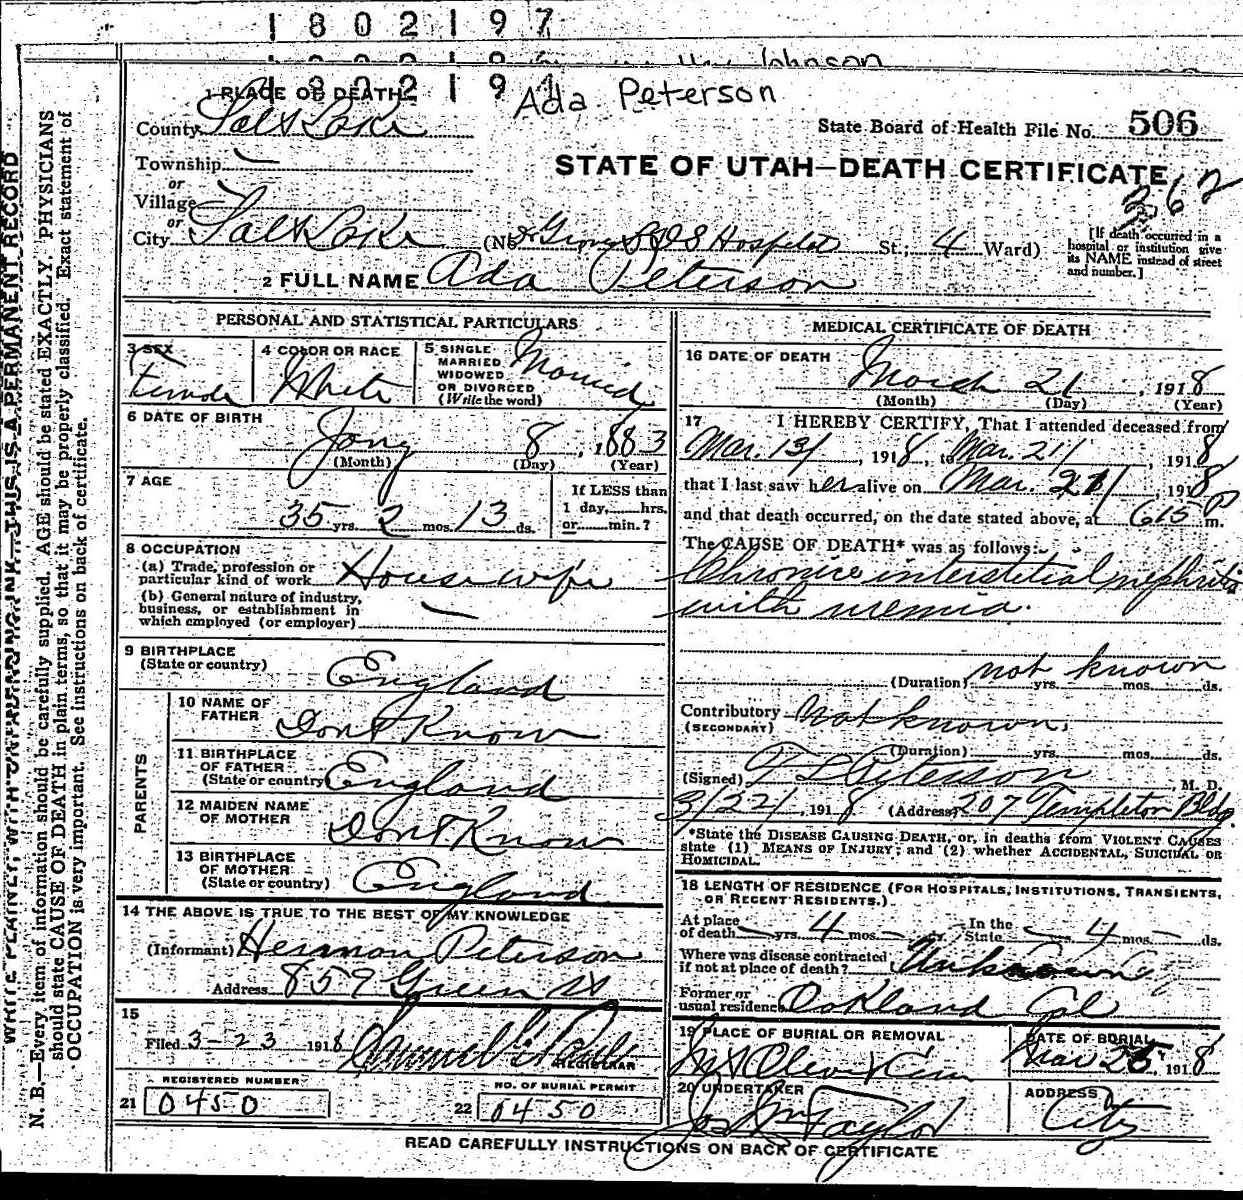 1802197
Johnson
180219
Ada Peterson
1 PLACE OF DEATH
County Salt Lake
State Board of Health File No. 506
Township —
STATE OF UTAH—DEATH CERTIFICATE
or
Village —
262
or
City Salt Lake (No. Groves LDS Hospital St.; 4 Ward)
[If death occurred in a
hospital or institution give
its NAME instead of street
and number.]
2 FULL NAME Ada Peterson
PERSONAL AND STATISTICAL PARTICULARS
3 SEX
Female
4 COLOR OR RACE
White
5 SINGLE
MARRIED
WIDOWED
OR DIVORCED
(Write the word)
Married
6 DATE OF BIRTH
Jany 8, 1883
(Month) (Day) (Year)
7 AGE
35 yrs. 2 mos. 13 ds.
If LESS than
1 day,......hrs.
or......min.?
8 OCCUPATION
(a) Trade, profession or
particular kind of work House wife
(b) General nature of industry,
business, or establishment in
which employed (or employer) —
9 BIRTHPLACE
(State or country) England
PARENTS
10 NAME OF
FATHER Dont Know
11 BIRTHPLACE
OF FATHER
(State or country) England
12 MAIDEN NAME
OF MOTHER Dont Know
13 BIRTHPLACE
OF MOTHER
(State or country) England
14 THE ABOVE IS TRUE TO THE BEST OF MY KNOWLEDGE
(Informant) Hermon Peterson
Address 859 Green St
15
Filed 3-23-1918
REGISTRAR
REGISTERED NUMBER
21 0450
NO. OF BURIAL PERMIT
22 0450
MEDICAL CERTIFICATE OF DEATH
16 DATE OF DEATH
March 21, 1918
(Month) (Day) (Year)
17 I HEREBY CERTIFY, That I attended deceased from
Mar. 13/, 1918, to Mar. 21/, 1918
that I last saw her alive on Mar. 21/, 1918
and that death occurred, on the date stated above, at 615 P m.
The CAUSE OF DEATH* was as follows:
Chronice interstitial nephritis
with uremia.
(Duration) not known yrs. mos. ds.
Contributory Not known.
(SECONDARY)
(Duration) yrs. mos. ds.
(Signed) Peterson, M. D.
3/22/, 1918 (Address) 207 Templeton Bldg.
*State the DISEASE CAUSING DEATH, or, in deaths from VIOLENT CAUSES
state (1) MEANS OF INJURY; and (2) whether ACCIDENTAL, SUICIDAL OR
HOMICIDAL.
18 LENGTH OF RESIDENCE (FOR HOSPITALS, INSTITUTIONS, TRANSIENTS,
OR RECENT RESIDENTS.)
At place
of death — yrs. 4 mos. — ds. In the
State — yrs. 4 mos. — ds.
Where was disease contracted
if not at place of death? Unknown
Former or
usual residence Oakland Cal
19 PLACE OF BURIAL OR REMOVAL
Mt Olivet Cem
DATE OF BURIAL
Mar 25 1918
20 UNDERTAKER
Jos Wm Taylor
ADDRESS
City
READ CAREFULLY INSTRUCTIONS ON BACK OF CERTIFICATE
WRITE PLAINLY, WITH UNFADING INK—THIS IS A PERMANENT RECORD
N. B.—Every item of information should be carefully supplied. AGE should be stated EXACTLY. PHYSICIANS
should state CAUSE OF DEATH in plain terms, so that it may be properly classified. Exact statement of
OCCUPATION is very important. See instructions on back of certificate.